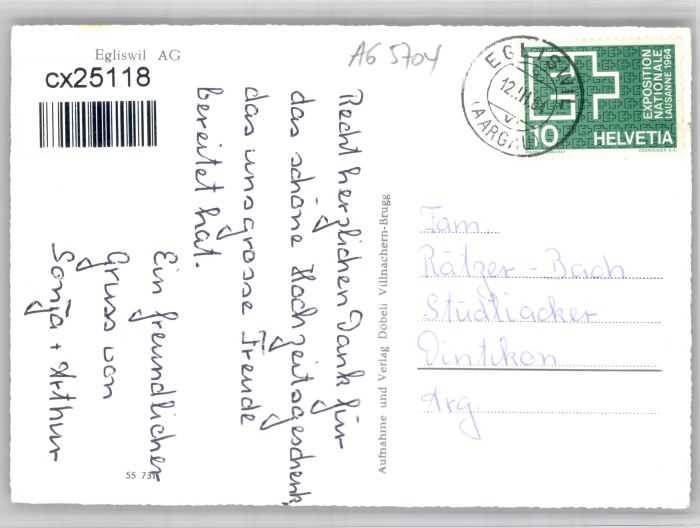 Egliswil AG
cx25118
AG 5704
EGLISWIL
12.III.64
(AARGAU)
EXPOSITION
NATIONALE
LAUSANNE 1964
10 HELVETIA
COURVOISIER S.A.
Recht herzlichen Dank für
das schöne Hochzeitsgeschenk,
das uns grosse Freude
bereitet hat.
Ein freundlicher
Gruss von
Sonja + Arthur
55 731
Aufnahme und Verlag Döbeli Villnachern-Brugg
Fam.
Rätzer-Bach
Stüdliacker
Dintikon
Arg.